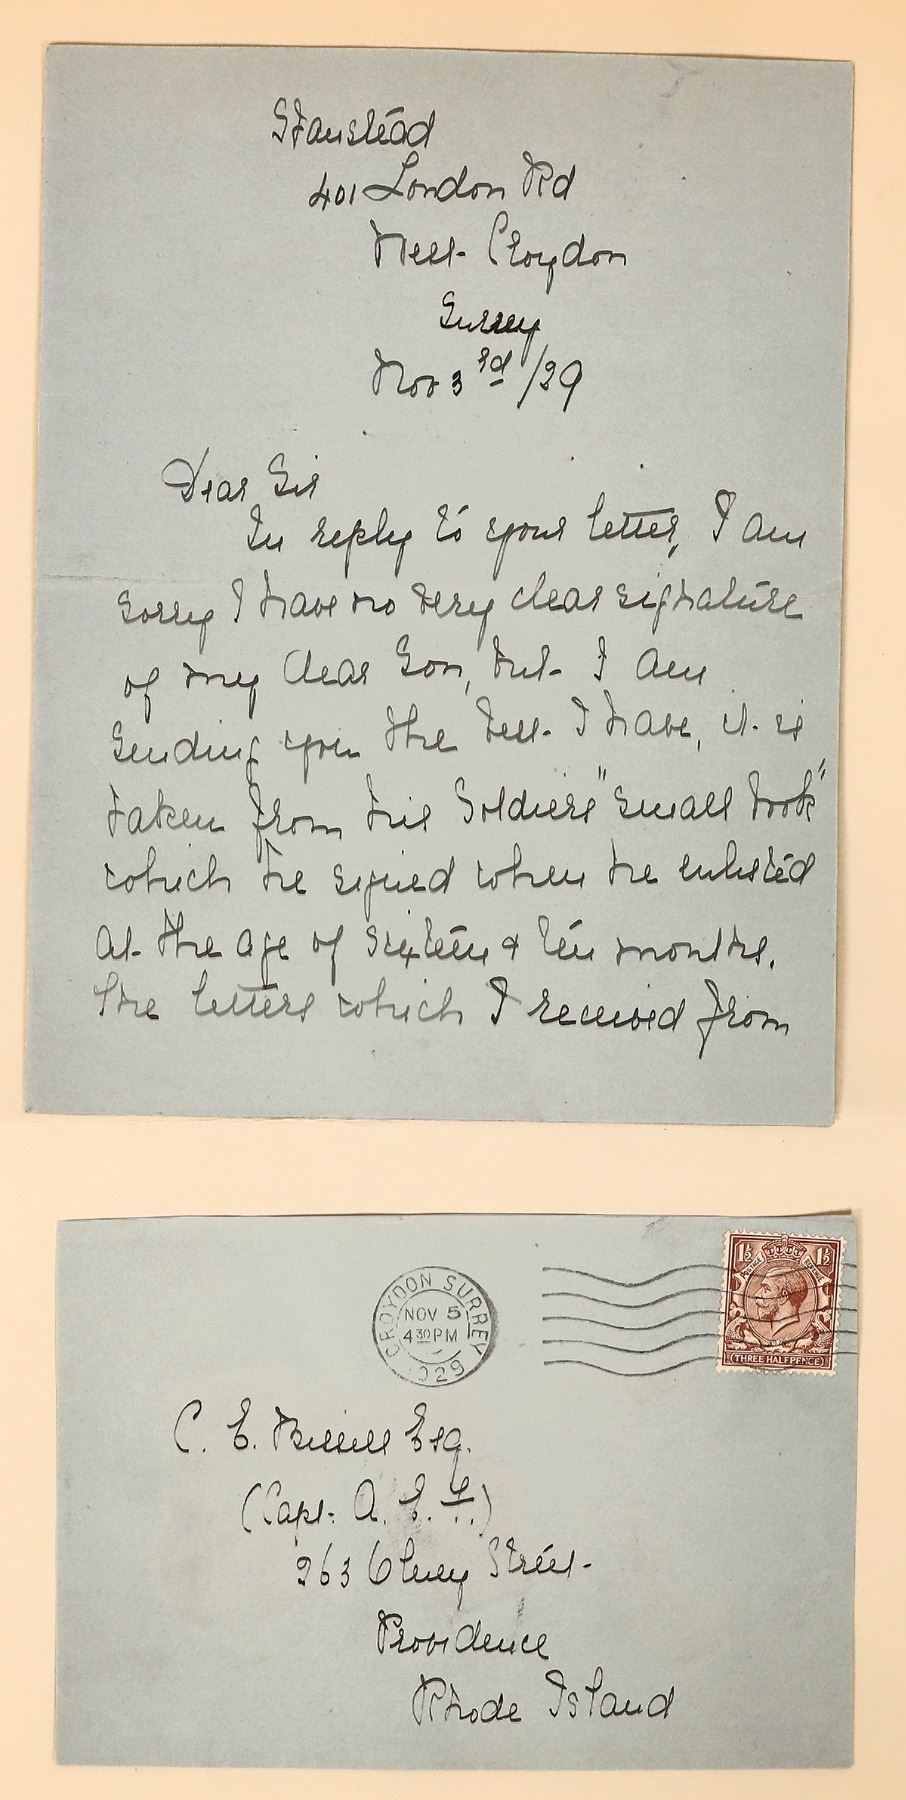 Stanstead
401 London Rd
West Croydon
Surrey
Nov 3rd/29
Dear Sir
In reply to your letter, I am
sorry I have no very clear signature
of my dear Son, but I am
sending you the best I have, it is
taken from his Soldiers "small book"
which he signed when he enlisted
at the age of sixteen & ten months.
The letters which I received from
CROYDON SURREY
NOV 5
4 30 PM
1929
1½ 1½
POSTAGE REVENUE
THREE HALFPENCE
C. E. Bissell Esq.
(Capt. A. E. F.)
263 Olney Street
Providence
Rhode Island